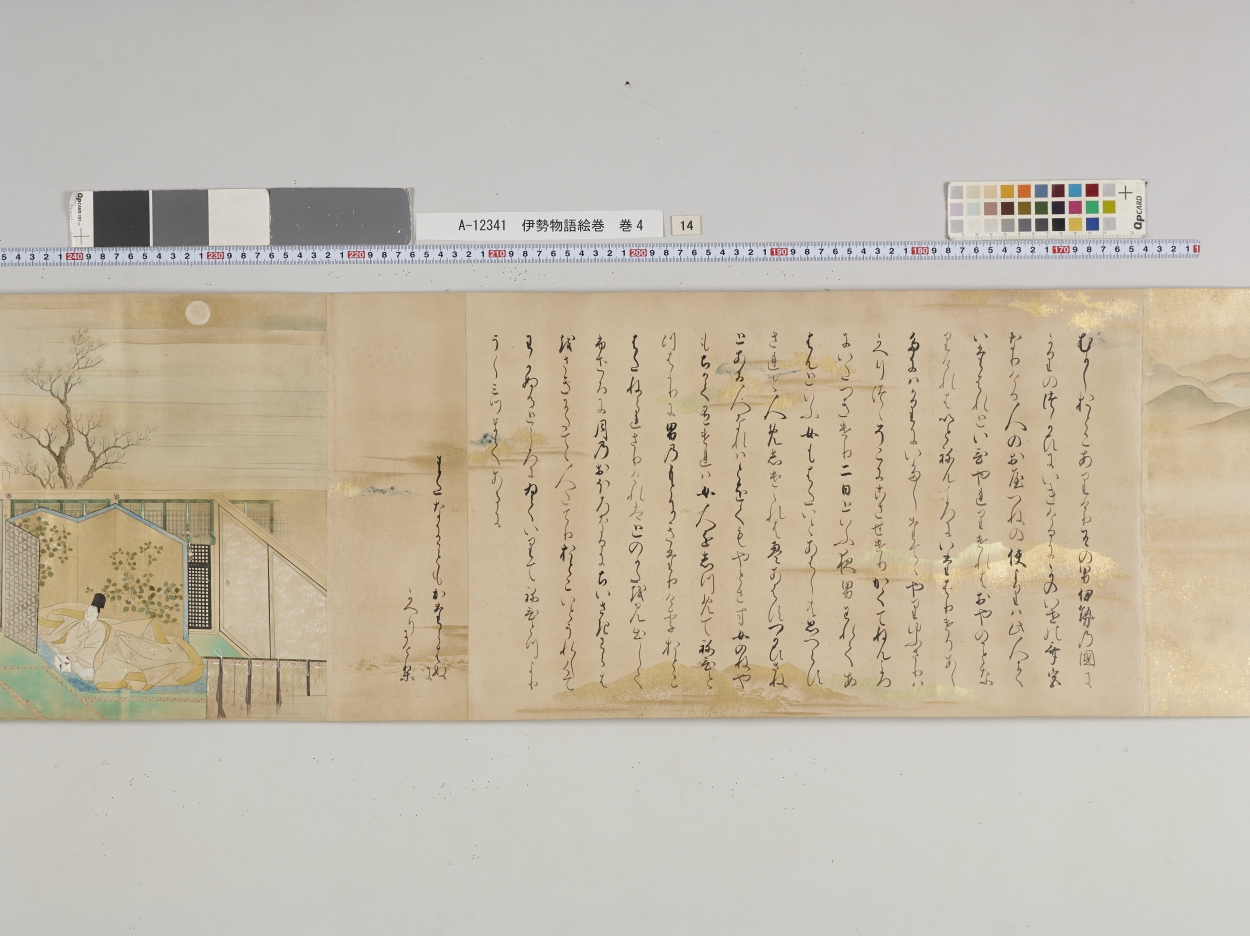 A-12341 伊勢物語絵巻 巻4
14
むかしおとこありけりその男伊勢の國に
かりの使にいきけるにかのいせの斎宮
なりける人のおやつねの使よりは此人よく
いたはれといひやれりけれはおやのことな
りけれはいとねんころにいたはりけりあし
たにはかりにいたしたてゝやりゆふさりは
かへりつゝそこにこさせけりかくてねんころ
にいたつきけり二日といふ夜男われてあ
はんといふ女もはたいとあはしとも思へらす
されと人めしけけれはえあはすつかひさね
とある人なれはとをくもやとさす女のねや
もちかくありけれは女人をしつめて祢ひと
つはかりに男のもとにきたりけりおとこ
はたねられさりけれはとのかたを見出して
ふせるに月のおほろなるにちいさきわらは
をさきにたてゝ人たてりおとこいとうれしくて
わかぬるところにゐていりて祢ひとつより
うしみつまてあるに
またなにこともかたらはぬに
かへりにけり
QPCARD